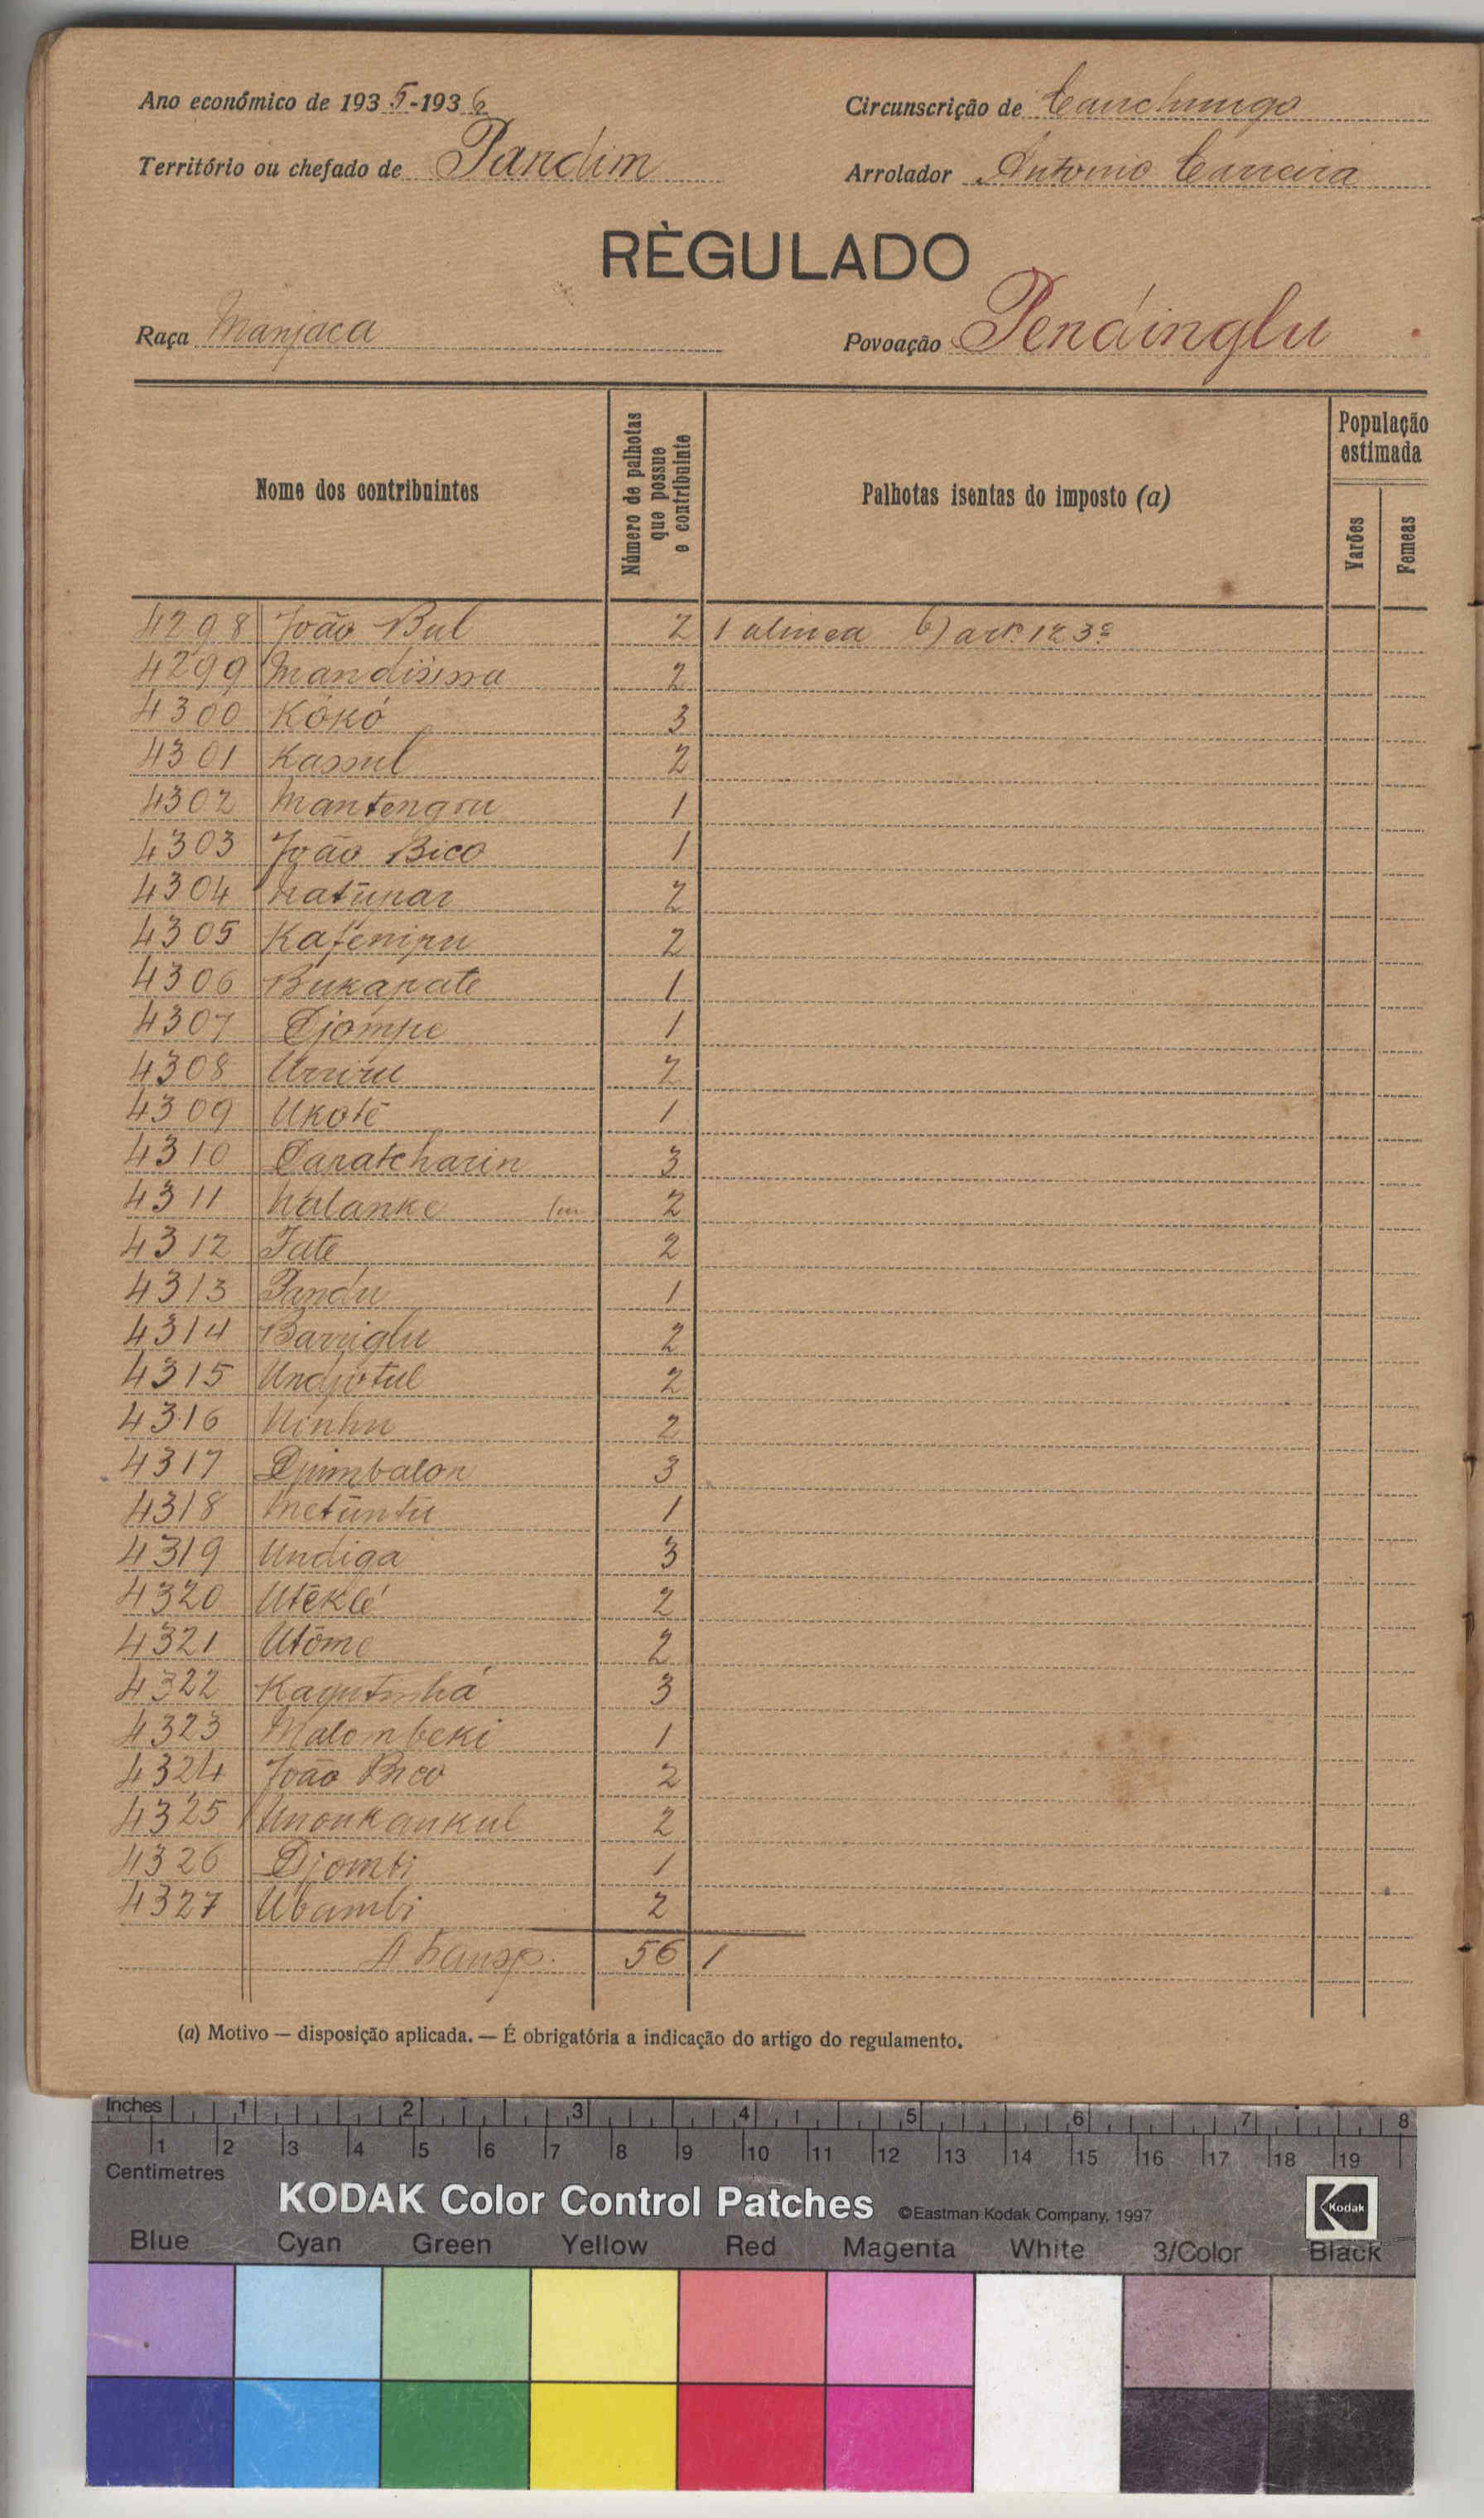 Ano económico de 1935-1936
Circunscrição de Canchungo
Território ou chefado de Pandim
Arrolador Antonio Carreira
RÈGULADO
Raça Manjaca
Povoação Pendinglu
Nome dos contribuintes
Número de palhotas que possue o contribuinte
Palhotas isentas do imposto (a)
População estimada
Varões
Femeas
4298 João Bul 2 1 alinea b) artº 123º
4299 2
4300 Kókó 3
4301 Kassul 2
4302 Mantengru 1
4303 João Bico 1
4304 Katúpar 2
4305 Kafenipu 2
4306 Bukapate 1
4307 Djompe 1
4308 2
4309 Ukoté 1
4310 3
4311 2
4312 2
4313 Pandu 1
4314 2
4315 Undjotul 2
4316 2
4317 Djimbalon 3
4318 Metúntú 1
4319 Undiga 3
4320 Utéklé 2
4321 Utóme 2
4322 3
4323 Malombeki 1
4324 João Bico 2
4325 2
4326 Djombi 1
4327 Ubambi 2
A transp. 56 1
(a) Motivo — disposição aplicada. — É obrigatória a indicação do artigo do regulamento.
Inches 1 2 3 4 5 6 7 8
1 2 3 4 5 6 7 8 9 10 11 12 13 14 15 16 17 18 19
Centimetres
KODAK Color Control Patches ©Eastman Kodak Company, 1997
Kodak
Blue Cyan Green Yellow Red Magenta White 3/Color Black